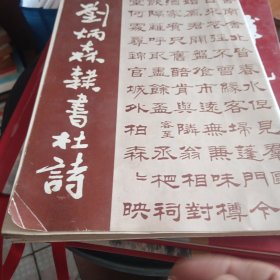 劉炳森隸書杜詩
舍北皆春水但見
日來花徑不曾緣客掃蓬門今
君開盤飧市遠無兼味樽
酒家貧只舊醅肯與鄰翁相對
飲隔籬呼取盡餘杯
客至
丞相祠
堂何處尋錦官城外柏森森映